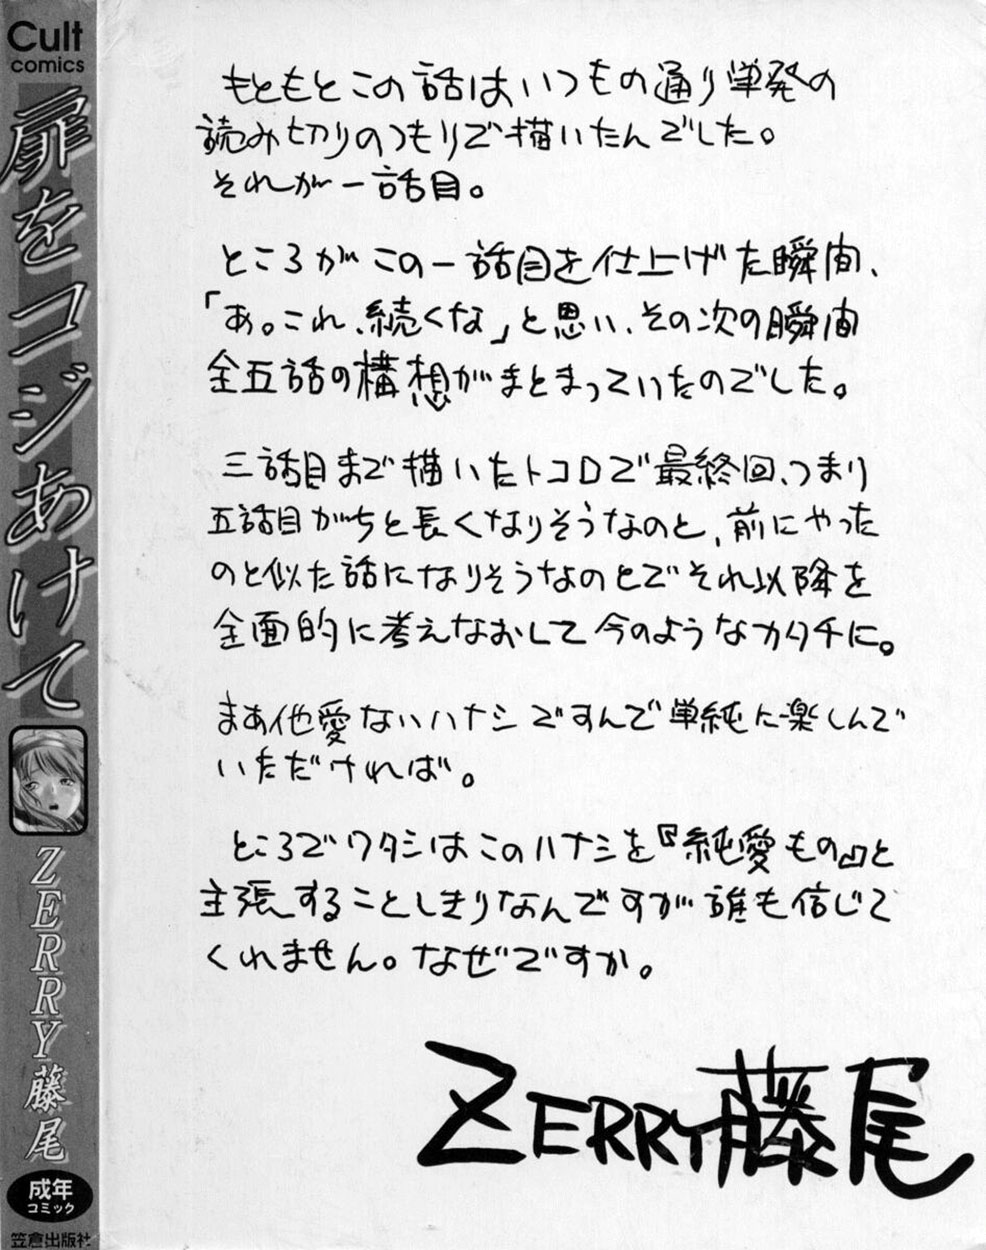 Cult
comics
扉をコジあけて
ZERRY藤尾
成年
コミック
笠倉出版社
もともとこの話はいつもの通り単発の
読み切りのつもりで描いたんでした。
それが一話目。
ところがこの一話目を仕上げた瞬間、
「あ。これ、続くな」と思い、その次の瞬間
全五話の構想がまとまっていたのでした。
三話目まで描いたトコロで最終回、つまり
五話目がちと長くなりそうなのと、前にやった
のと似た話になりそうなのとでそれ以降を
全面的に考えなおして今のようなカタチに。
まあ他愛ないハナシですんで単純に楽しんで
いただければ。
ところでワタシはこのハナシを『純愛もの』と
主張することしきりなんですが誰も信じて
くれません。なぜですか。
ZERRY藤尾